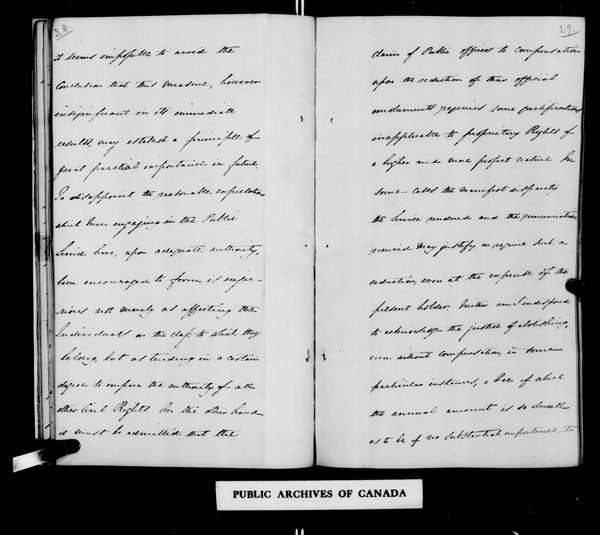 28.
it seems impossible to avoid the
conclusion that this measure, however
insignificant in its immediate
results, may establish a principle of
great practical importance in future.
To disappoint the reasonable expectations
which Men engaging in the Public
Service have, upon adequate authority,
been encouraged to form, is inju-
rious not merely as affecting the
Individuals or the class to which they
belong, but as tending in a certain
degree to impair the authority of all
other Civil Rights. On the other hand
it must be admitted that the
29.
claim of Public officers to compensation
upon the reduction of their official
emoluments, requires some qualifications
inapplicable to proprietary Rights of
a higher and more perfect nature. In
some cases the manifest disparity
the Service rendered and the remuneration
received may justify or require such a
reduction, even at the expense of the
present holder. Neither am I indisposed
to acknowledge the justice of abolishing,
even without compensation, in some
particular instances, a Fee of which
the annual amount is so small
as to be of no substantial importance to
PUBLIC ARCHIVES OF CANADA